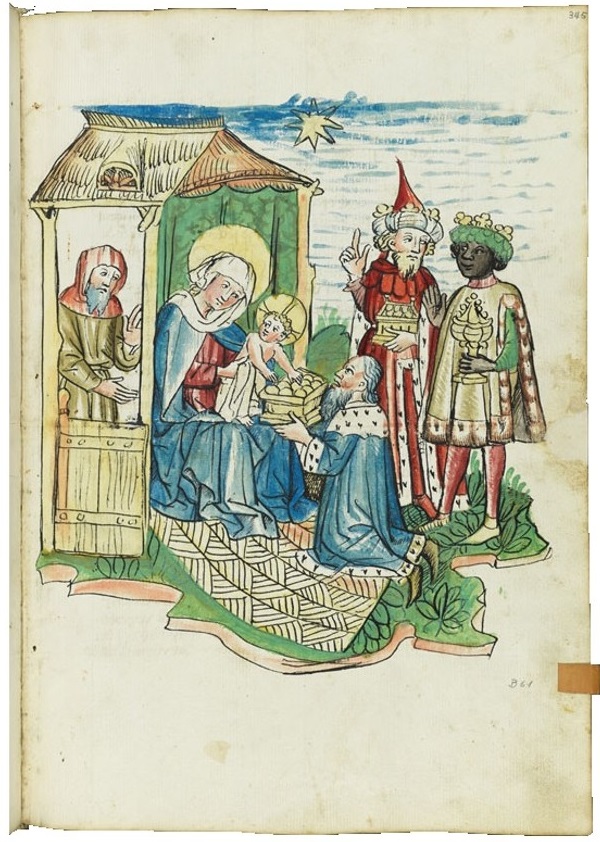 345
B 61